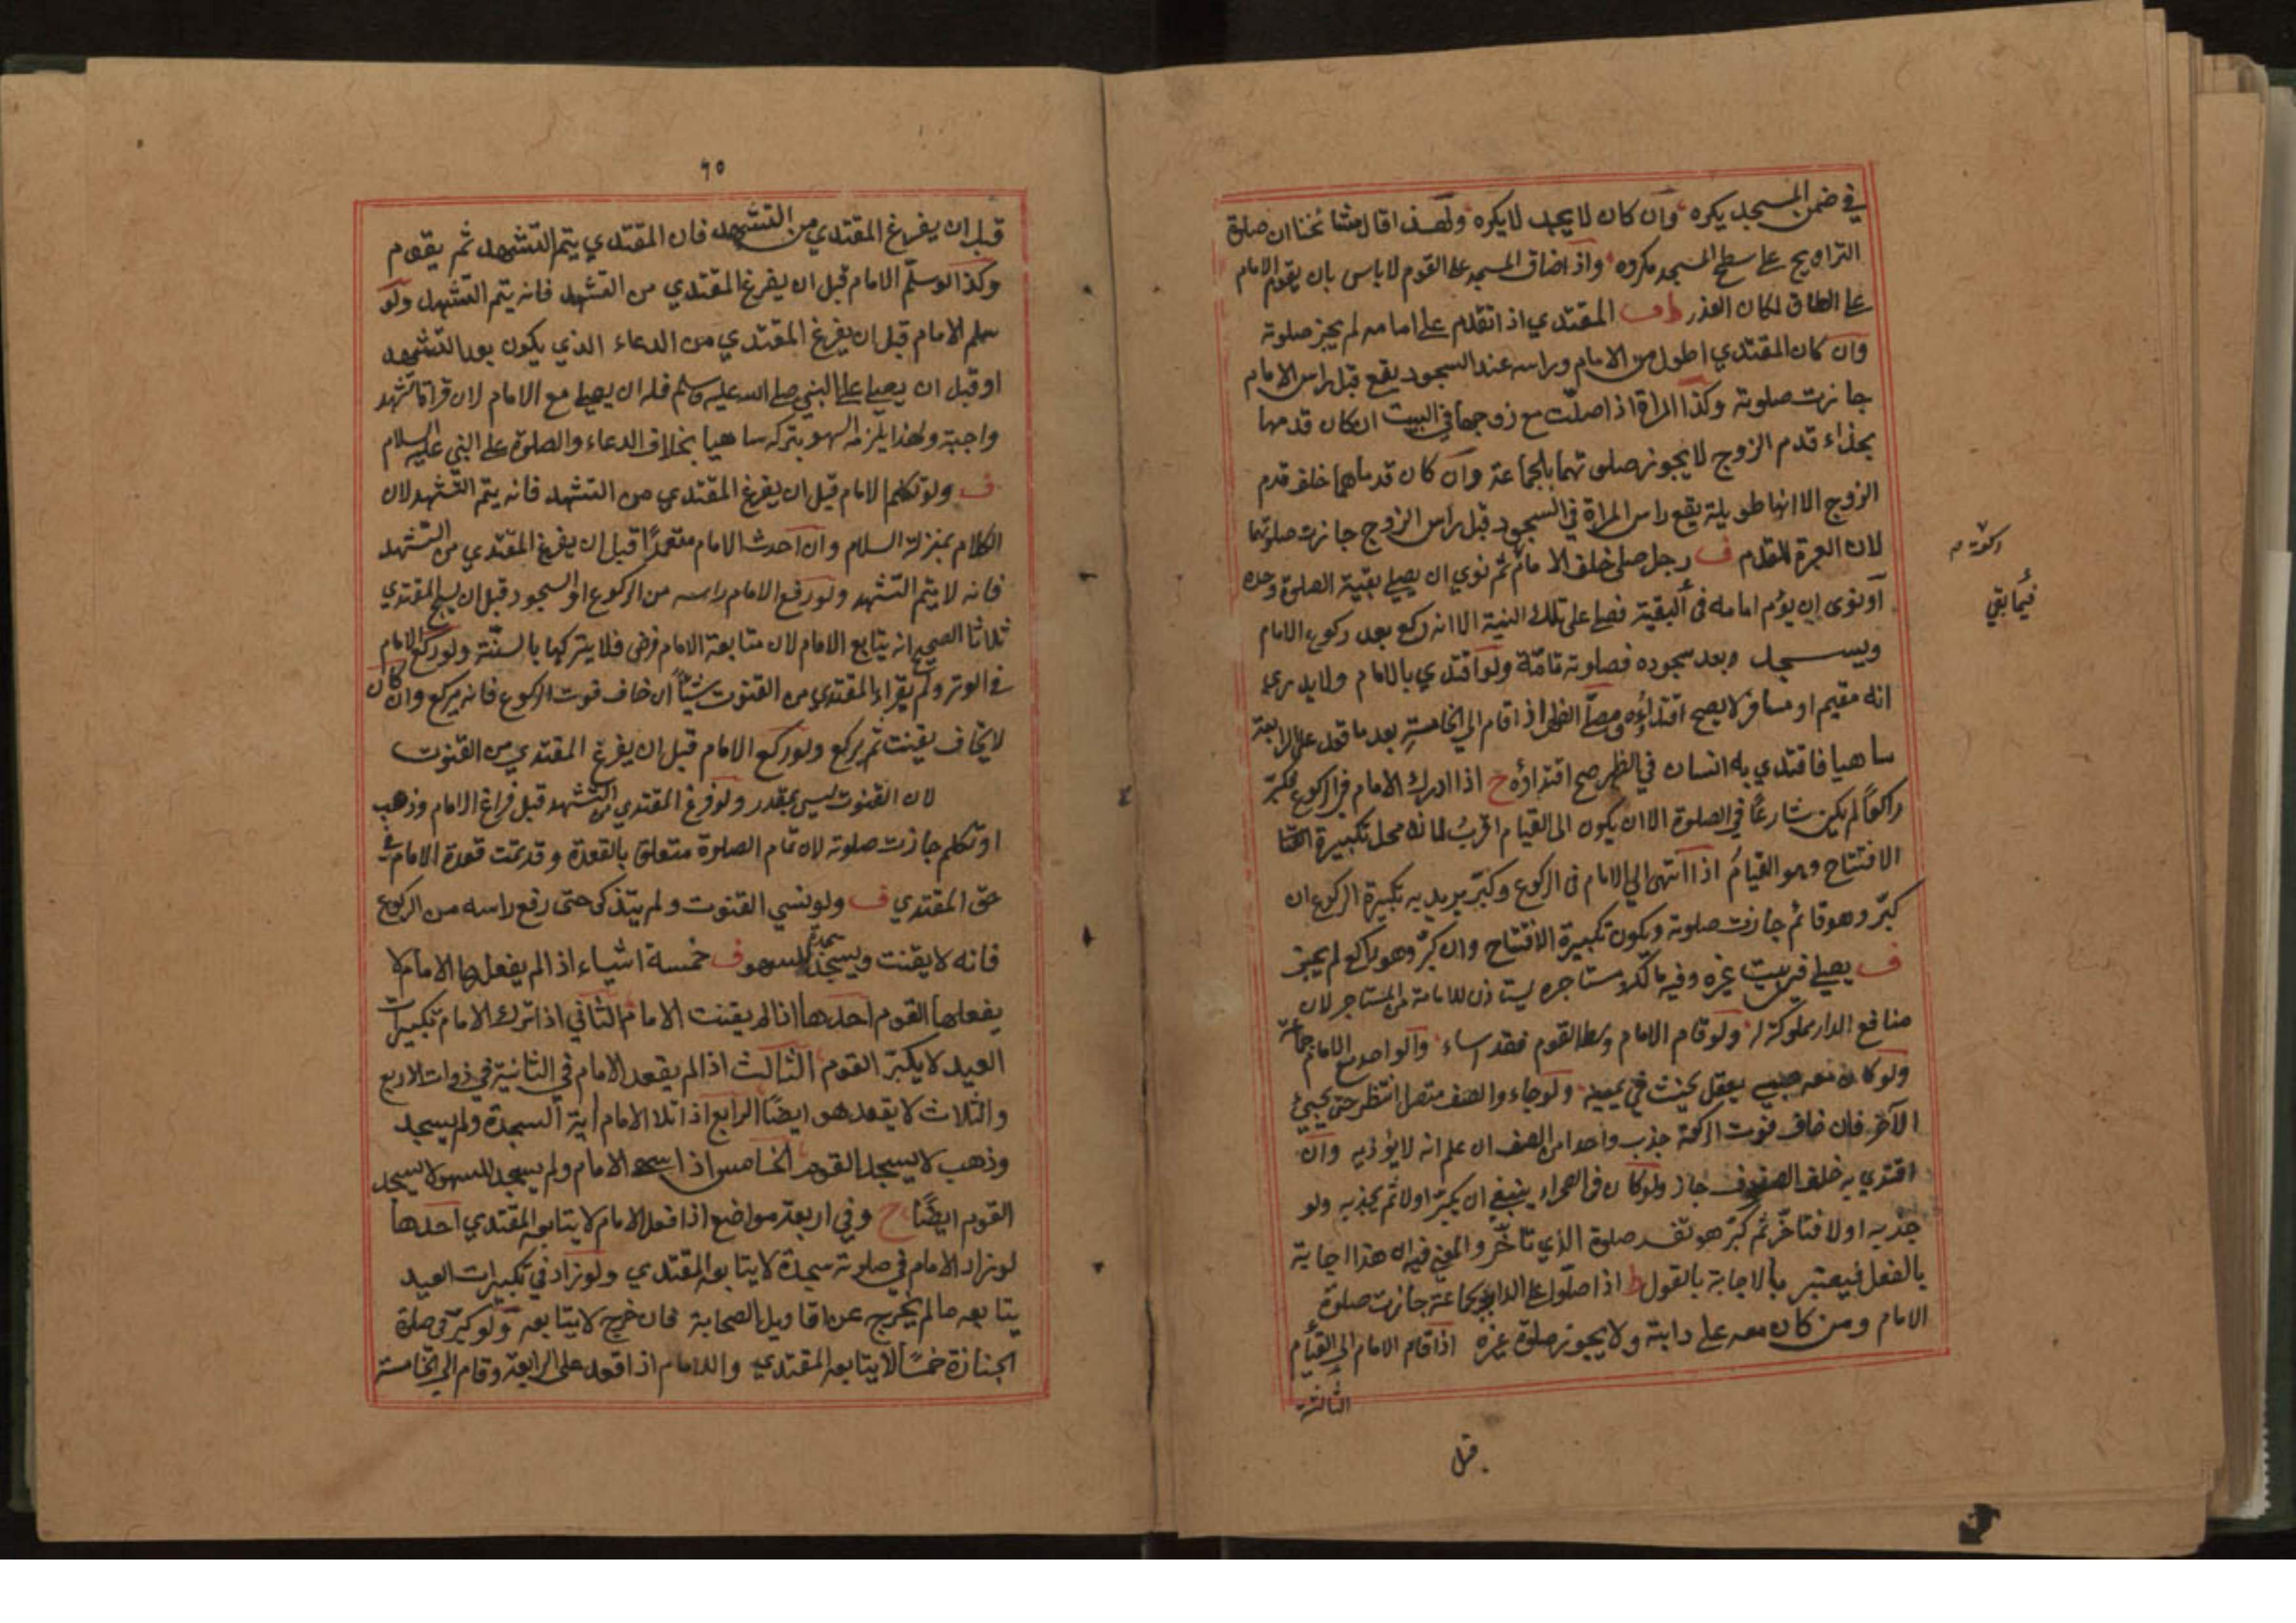 في ضمن المسجد يكره وان كان لا يجد لا يكره ولهذا قال مشائخنا ان صلوة
التراويح على سطح المسجد مكروه واذا ضاق المسجد على القوم لا باس بان يقوم الامام
على الطاق لمكان العذر ط ف المقتدي اذا تقدم على امامه لم يجز صلوته
وان كان المقتدي اطول من الامام وراسه عند السجود يقع قبل راس الامام
جازت صلوته وكذا المراة اذا صلت مع زوجها في البيت ان كان قدمها
بحذاء قدم الزوج لا يجوز صلوتهما بالجماعة وان كان قدماهما خلف قدم
الزوج الا انها طويلة يقع راس المراة في السجود قبل راس الزوج جازت صلوتهما
لان العبرة للقدم ف رجل صلى خلف الامام ثم نوي ان يصلي بقية الصلوة وحده
او نوى ان يؤم امامه في البقية فصلى على تلك النية الا انه ركع بعد ركوع الامام
ويسجد وبعد سجوده فصلوته تامة ولو اقتدي بالامام ولا يدري
انه مقيم او مسافر لا يصح اقتداؤه ومصلي الظهر اذا قام الي الخامسة بعد ما قعد على الرابعة
ساهيا فاقتدي به انسان في الظهر صح اقتداؤه ح اذا ادرك الامام في الركوع فكبر
راكعا لم يكن شارعا في الصلوة الا ان يكون الى القيام اقرب لما انه محل تكبيرة
الافتتاح وهو القيام اذا انتهى الي الامام في الركوع وكبر يريد به تكبيرة الركوع ان
كبر وهو قائم جازت صلوته ويكون تكبيرة الافتتاح وان كبر وهو راكع لم يجز
ف يصلي في بيت غيره وفيه مالكه ومستاجره ليستاذن للامامة من المستاجر لان
منافع الدار مملوكة له ولو قام الامام وسط القوم فقد اساء والواحد مع الامام جماعة
ولو كان معه صبي يعقل يحنث في يمينه ولو جاء والصف متصل انتظر حتى يجيئ
الآخر فان خاف فوت الركعة جذب واحدا من الصف ان علم انه لا يؤذيه وان
اقتدي به خلف الصفوف جاز ولو كان في الصحراء ينبغي ان يكبر اولا ثم يجذبه ولو
جذبه اولا فتاخر ثم كبر هو تفسد صلوة الذي تاخر والمعني فيه ان هذا اجابة
بالفعل فيعتبر بالاجابة بالقول ط اذا صلوا على الدابة بجماعة جازت صلوة
الامام ومن كان معه على دابته ولا يجوز صلوة غيره اذا قام الامام الي القيام
الثالثة
قبل
فيما بقي
٦٥
قبل ان يفرغ المقتدي من التشهد فان المقتدي يتم التشهد ثم يقوم
وكذا لو سلم الامام قبل ان يفرغ المقتدي من التشهد فانه يتم التشهد ولو
سلم الامام قبل ان يفرغ المقتدي من الدعاء الذي يكون بعد التشهد
او قبل ان يصلي على النبي صلى الله عليه وسلم فله ان يصلي مع الامام لان قراة التشهد
واجبة ولهذا يلزمه السهو بتركه ساهيا بخلاف الدعاء والصلوة على النبي عليه السلام
ف ولو تكلم الامام قبل ان يفرغ المقتدي من التشهد فانه يتم التشهد لان
الكلام بمنزلة السلام وان احدث الامام متعمدا قبل ان يفرغ المقتدي من التشهد
فانه لا يتم التشهد ولو رفع الامام راسه من الركوع او السجود قبل ان يسبح المقتدي
ثلاثا الصحيح انه يتابع الامام لان متابعة الامام فرض فلا يتركها بالسنة ولو ركع الامام
في الوتر ولم يقراء المقتدي من القنوت شيئا ان خاف فوت الركوع فانه يركع وان كان
لا يخاف يقنت ثم يركع ولو ركع الامام قبل ان يفرغ المقتدي من القنوت
لان القنوت ليس بمقدر ولو فرغ المقتدي من التشهد قبل فراغ الامام وذهب
او تكلم جازت صلوته لان تمام الصلوة متعلق بالقعدة وقد تمت قعدة الامام في
حق المقتدي ف ولو نسي القنوت ولم يتذكر حتى رفع راسه من الركوع
فانه لا يقنت ويسجد للسهو ف خمسة اشياء اذا لم يفعلها الامام لا
يفعلها القوم احدها اذا لم يقنت الامام الثاني اذا ترك الامام تكبيرات
العيد لا يكبر القوم الثالث اذا لم يقعد الامام في الثانية في ذوات الاربع
والثلاث لا يقعد هو ايضا الرابع اذا تلا الامام اية السجدة ولم يسجد
وذهب لا يسجد القوم الخامس اذا سهى الامام ولم يسجد للسهو لا يسجد
القوم ايضا ح وفي اربعة مواضع اذا فعل الامام لا يتابعه المقتدي احدها
لو زاد الامام في صلوته سجدة لا يتابعه المقتدي ولو زاد في تكبيرات العيد
يتابعه ما لم يخرج عن اقاويل الصحابة فان خرج لا يتابعه ولو كبر في صلوة
الجنازة خمسا لا يتابعه المقتدي والامام اذا قعد على الرابعة وقام الي الخامسة